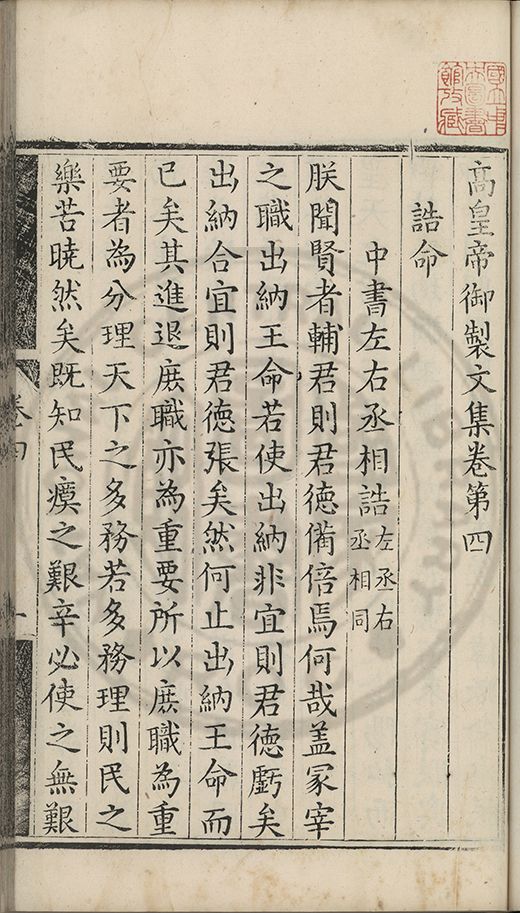 高皇帝御製文集卷第四
誥命
中書左右丞相誥左丞右丞相同
朕聞賢者輔君則君德備倍焉何哉蓋冢宰
之職出納王命若使出納非宜則君德虧矣
出納合宜則君德張矣然何止出納王命而
已矣其進退庶職亦為重要所以庶職為重
要者為分理天下之多務若多務理則民之
樂苦曉然矣既知民瘼之艱辛必使之無艱
卷四
一
國立中央圖書館收藏